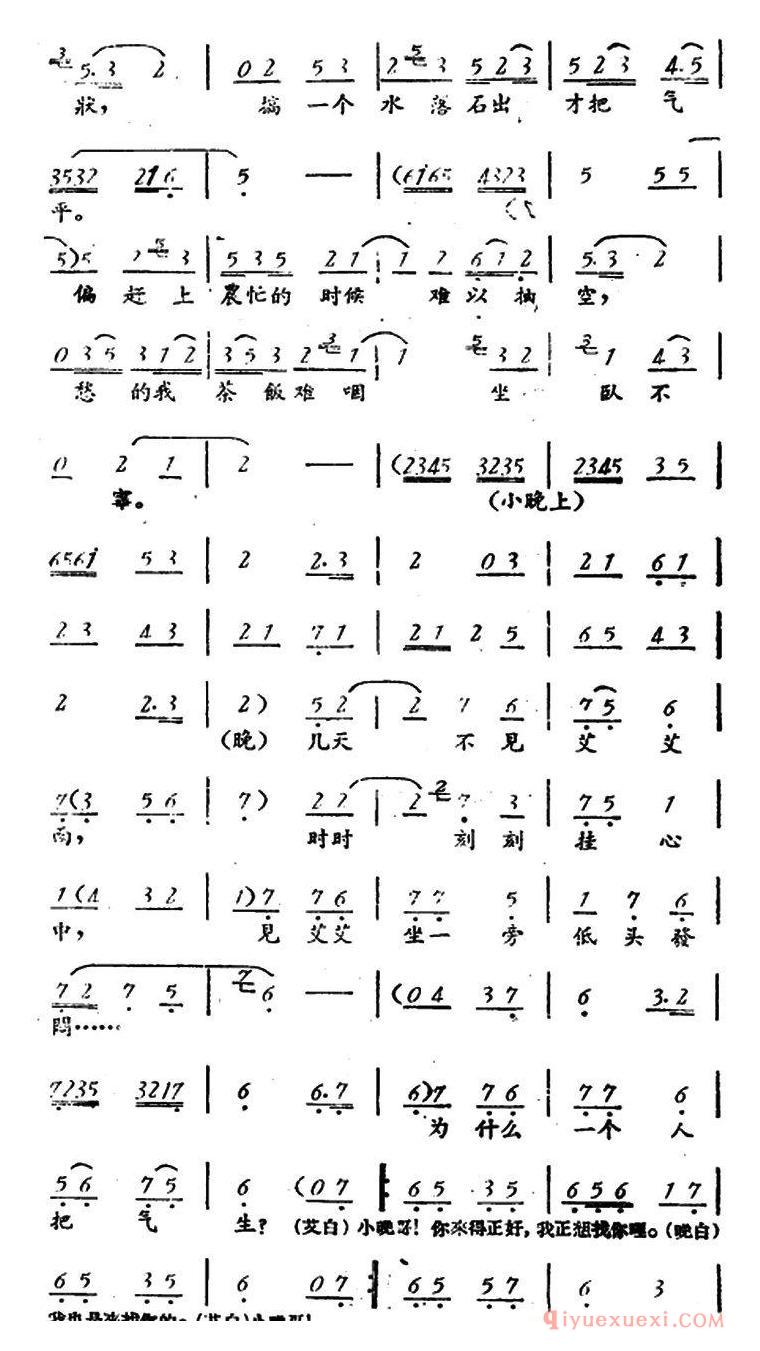 3 5.3 2 | 0 2 5 3 | 2 5 3 5 2 3 | 5 2 3 4.5 |
狀， 搞 一个 水 落 石出 才把 气
3532 216 | 5 — | (6i65 4323 | 5 5 5
平。
5)5 2 5 3 | 5 3 5 2 1 | 1 2 6 1 2 | 5.3 2 |
偏 赶 上 農忙的 时候 难 以 抽 空，
0 3 5 3 1 2 | 3 5 3 2 3 1 | 1 5 3 2 | 3 1 4 3 |
愁 的我 茶 飯 难 咽 坐 臥 不
0 2 1 | 2 — | (2345 3235 | 2345 3 5 |
寧。 (小晚上)
656i 5 3 | 2 2.3 | 2 0 3 | 2 1 6 1 |
2 3 4 3 | 2 1 7 1 | 2 1 2 5 | 6 5 4 3 |
2 2.3 | 2) 5 2 | 2 7 6 | 7 5 6 |
(晚) 几天 不 見 艾 艾
7 (3 5 6 | 7) 2 2 | 2 2 7 3 | 7 5 1 |
面， 时时 刻 刻 挂 心
1 (4 3 2 | 1) 7 7 6 | 7 7 5 | 1 7 6 |
中， 見 艾艾 坐一 旁 低 头 發
7 2 7 5 | 7 6 — | (0 4 3 7 | 6 3.2 |
悶……
7235 3217 | 6 6.7 | 6) 7 7 6 | 7 7 6 |
为 什么 一个 人
5 6 7 5 | 6 (0 7 : 6 5 3 5 | 6 5 6 1 7 |
把 气 生？ (艾白) 小晚哥！你來得正好，我正想找你哩。(晚白)
6 5 3 5 | 6 0 7 : 6 5 5 7 | 6 3
我也是来找你的。(艾白)小晚哥！
qiyuexuexi.com